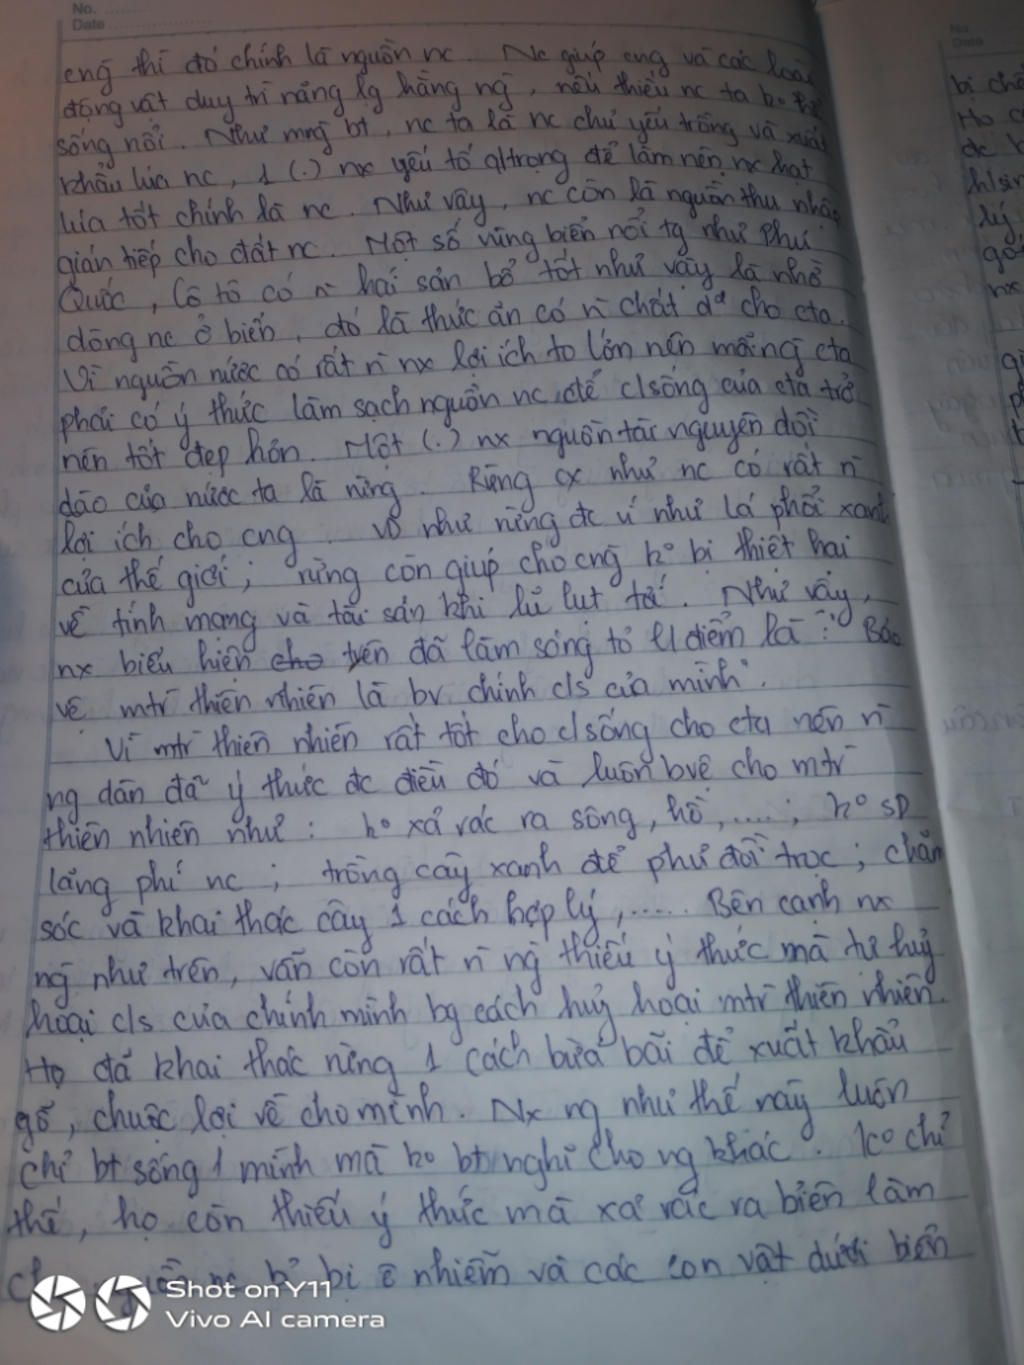 No.
Date
cng thì đó chính là nguồn nc. Nc giúp cng và các loài
động vật duy trì năng lg hằng ng, nếu thiếu nc ta ko thể
sống nổi. Như mng bt, nc ta là nc chủ yếu trồng và xuất
khẩu lúa nc, 1 (.) nx yếu tố q/trọng để làm nên nx hạt
lúa tốt chính là nc. Như vậy, nc còn là nguồn thu nhập
gián tiếp cho đất nc. Một số vùng biển nổi tg như Phú
Quốc, Cô tô có n hải sản bổ tốt như vậy là nhờ
dòng nc ở biển, đó là thức ăn có n chất d² cho cta.
Vì nguồn nước có rất n nx lợi ích to lớn nên mỗi ng cta
phải có ý thức làm sạch nguồn nc để c/sống của cta trở
nên tốt đẹp hơn. Một (.) nx nguồn tài nguyên dồi
dào của nước ta là rừng. Rừng cx như nc có rất n
lợi ích cho cng. Ví như rừng đc ví như lá phổi xanh
của thế giới; rừng còn giúp cho cng ko bị thiệt hại
về tính mạng và tài sản khi lũ lụt tới. Như vậy,
nx biểu hiện cho trên đã làm sáng tỏ q/điểm là : " Bảo
vệ mtr thiên nhiên là bv chính c/s của mình".
Vì mtr thiên nhiên rất tốt cho c/sống cho cta nên n
ng dân đã ý thức đc điều đó và luôn bvệ cho mtr
thiên nhiên như : ko xả rác ra sông, hồ,....; ko SD
lãng phí nc ; trồng cây xanh để phủ đồi trọc ; chăm
sóc và khai thác cây 1 cách hợp lý,..... Bên cạnh nx
ng như trên, vẫn còn rất n ng thiếu ý thức mà tự huỷ
hoại c/s của chính mình bg cách huỷ hoại mtr thiên nhiên.
Họ đã khai thác rừng 1 cách bừa bãi để xuất khẩu
gỗ, chuộc lợi về cho mình. Nx ng như thế này luôn
chỉ bt sống 1 mình mà ko bt nghĩ cho ng khác. Ko chỉ
thế, họ còn thiếu ý thức mà xả rác ra biển làm
nc bị ô nhiễm và các con vật dưới biển
Shot on Y11
Vivo AI camera